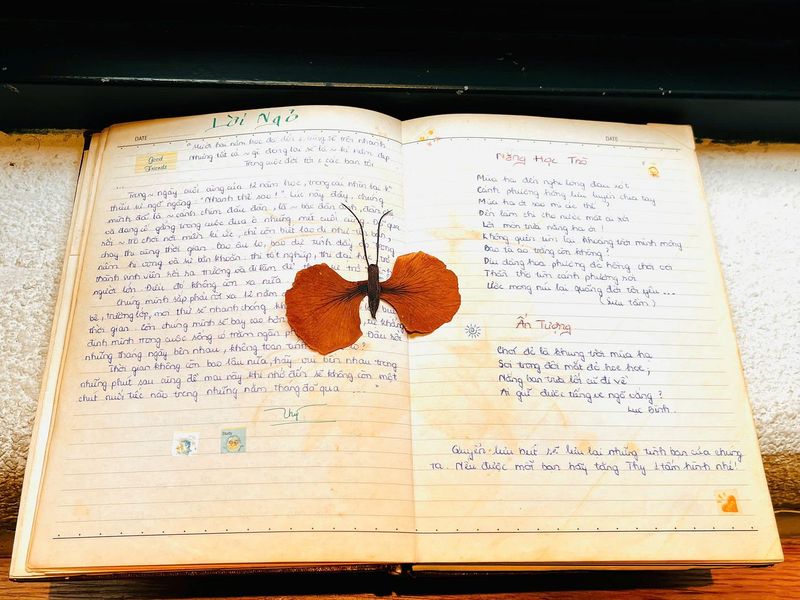 Lời Ngỏ
DATE
Good
Friends
"Mười hai năm học dù dài c cũng sẽ trôi nhanh
Nhưng tất cả ~ gì đọng lại sẽ là ~ kỉ niệm đẹp
Trong cuộc đời tôi & các bạn tôi
Trong ~ ngày cuối cùng của 12 năm học, trong các nhìn lại &
thầm sẽ ngỡ ngàng: "Nhanh thế sao!" Lúc này đây, chúng
mình đã là ~ cánh chim đầu đàn, là ~
và đang cố gắng trong cuộc đua ở những mét cuối cùng. Để qua
rồi ~ trò chơi nơi miền kí ức, chỉ còn bút lao đi như
chạy thi cùng thời gian. bao âu lo, bao dự tính đầy
niềm hi vọng và kể băn khoăn: thi tốt nghiệp, thi đại
thành sinh viên rồi ra trường và đi làm để
người lớn. Điều đó không còn xa nữa
Chúng mình sắp phải xa 12 năm
bè, trường lớp, mọi thứ sẽ nhanh chóng
thời gian. Còn chúng mình sẽ bay cao hơn
định mình trong cuộc sống có trăm ngàn
những tháng ngày bên nhau, không toan tính
Thời gian không còn bao lâu nữa, hãy vui bên nhau trong
những phút sau cùng để mai này khi nhớ đến sẽ không còn một
chút nuối tiếc nào trong những năm tháng đã qua ... "
Thy
Study
DATE
Nắng Học Trò
Mùa hạ đến nghe lòng đau xót
Cánh phượng hồng lưu luyến chia tay
Mùa hạ ơi sao mi ác thế ?
Đến làm chi cho nước mắt ai rơi
Lời môn trưa nắng hạ ơi !
Không quên tìm lại khoảng trời mình mỏng
Bao tà áo trắng còn không ?
Dịu dàng hoa phượng đỏ hồng chơi vơi
Thẫn thờ tìm cánh phượng rơi
Ước mong níu lại quãng đời tôi yêu ...
(Sưu tầm)
Ấn Tượng
Chợt đỏ là khung trời mùa hạ
Sợi trong đôi mắt đỏ hoe hoe,
Nắng ban trưa lời cũ đi về
Ai giữ được tiếng ve ngõ vắng ?
Lục Bình.
Quyển lưu bút sẽ lưu lại những tình bạn của chúng
ta. Nếu được mỗi bạn hãy tặng Thy 1 tấm hình nhé!